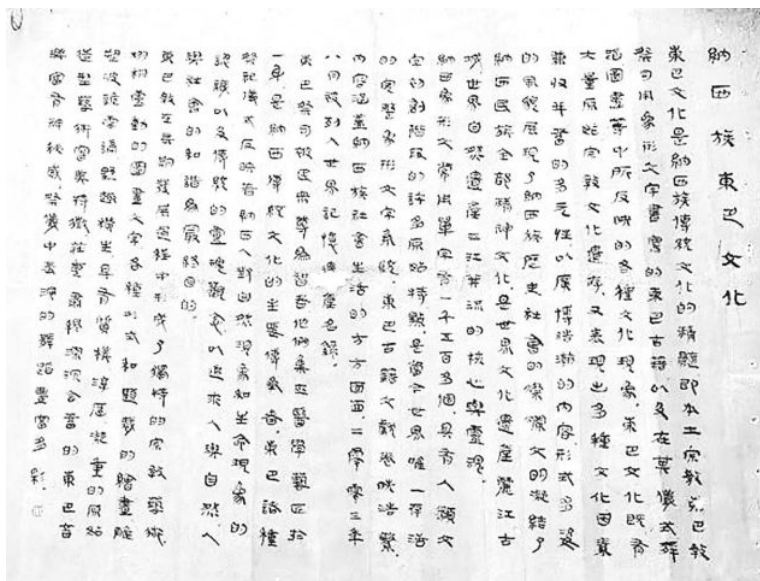 納西族東巴文化
東巴文化是納西族傳統文化的精髓即本土宗教东巴教
祭司用象形文字書寫的東巴古籍以及在其儀式舞
蹈圖畫等中所反映的各種文化現象.東巴文化既有
大量原始宗教文化遺存,又表現出多種文化因素
兼收并蓄的多元性以廣博浩瀚的内容形式多姿
的風貌展現了納西族歷史社會的燦爛文明凝結了
納西民族全部精神文化.是世界文化遺產麗江古
城世界自然遺產三江并流的核心與靈魂.
納西象形文常用單字有一千五百多個,具有人類文
字初創階段的許多原始特點.是當今世界唯一存活
的完整象形文字系統.東巴古籍文獻卷帙浩繁
内容涵蓋納西族社會生活的方方面面.二零零三年
八月被列入世界記憶遺產名錄.
東巴祭司被民眾尊為智者他們集巫醫學藝匠於
一身是納西傳統文化的主要傳承者.東巴諸種
祭祀儀式反映着納西人對自然現象和生命現象的
認識以及傳統的靈魂觀念以追求人與自然.人
與社會的和諧為最終目的.
東巴教在長期發展過程中形成了獨特的宗教藝術
栩栩靈動的圖畫文字各種形式和題材的繪畫雕
塑有質樸淳厚凝重的原始
造型特徵莊重肅穆深沉含蓄的東巴音
樂富有神秘感.祭儀中的舞蹈豐富多彩.